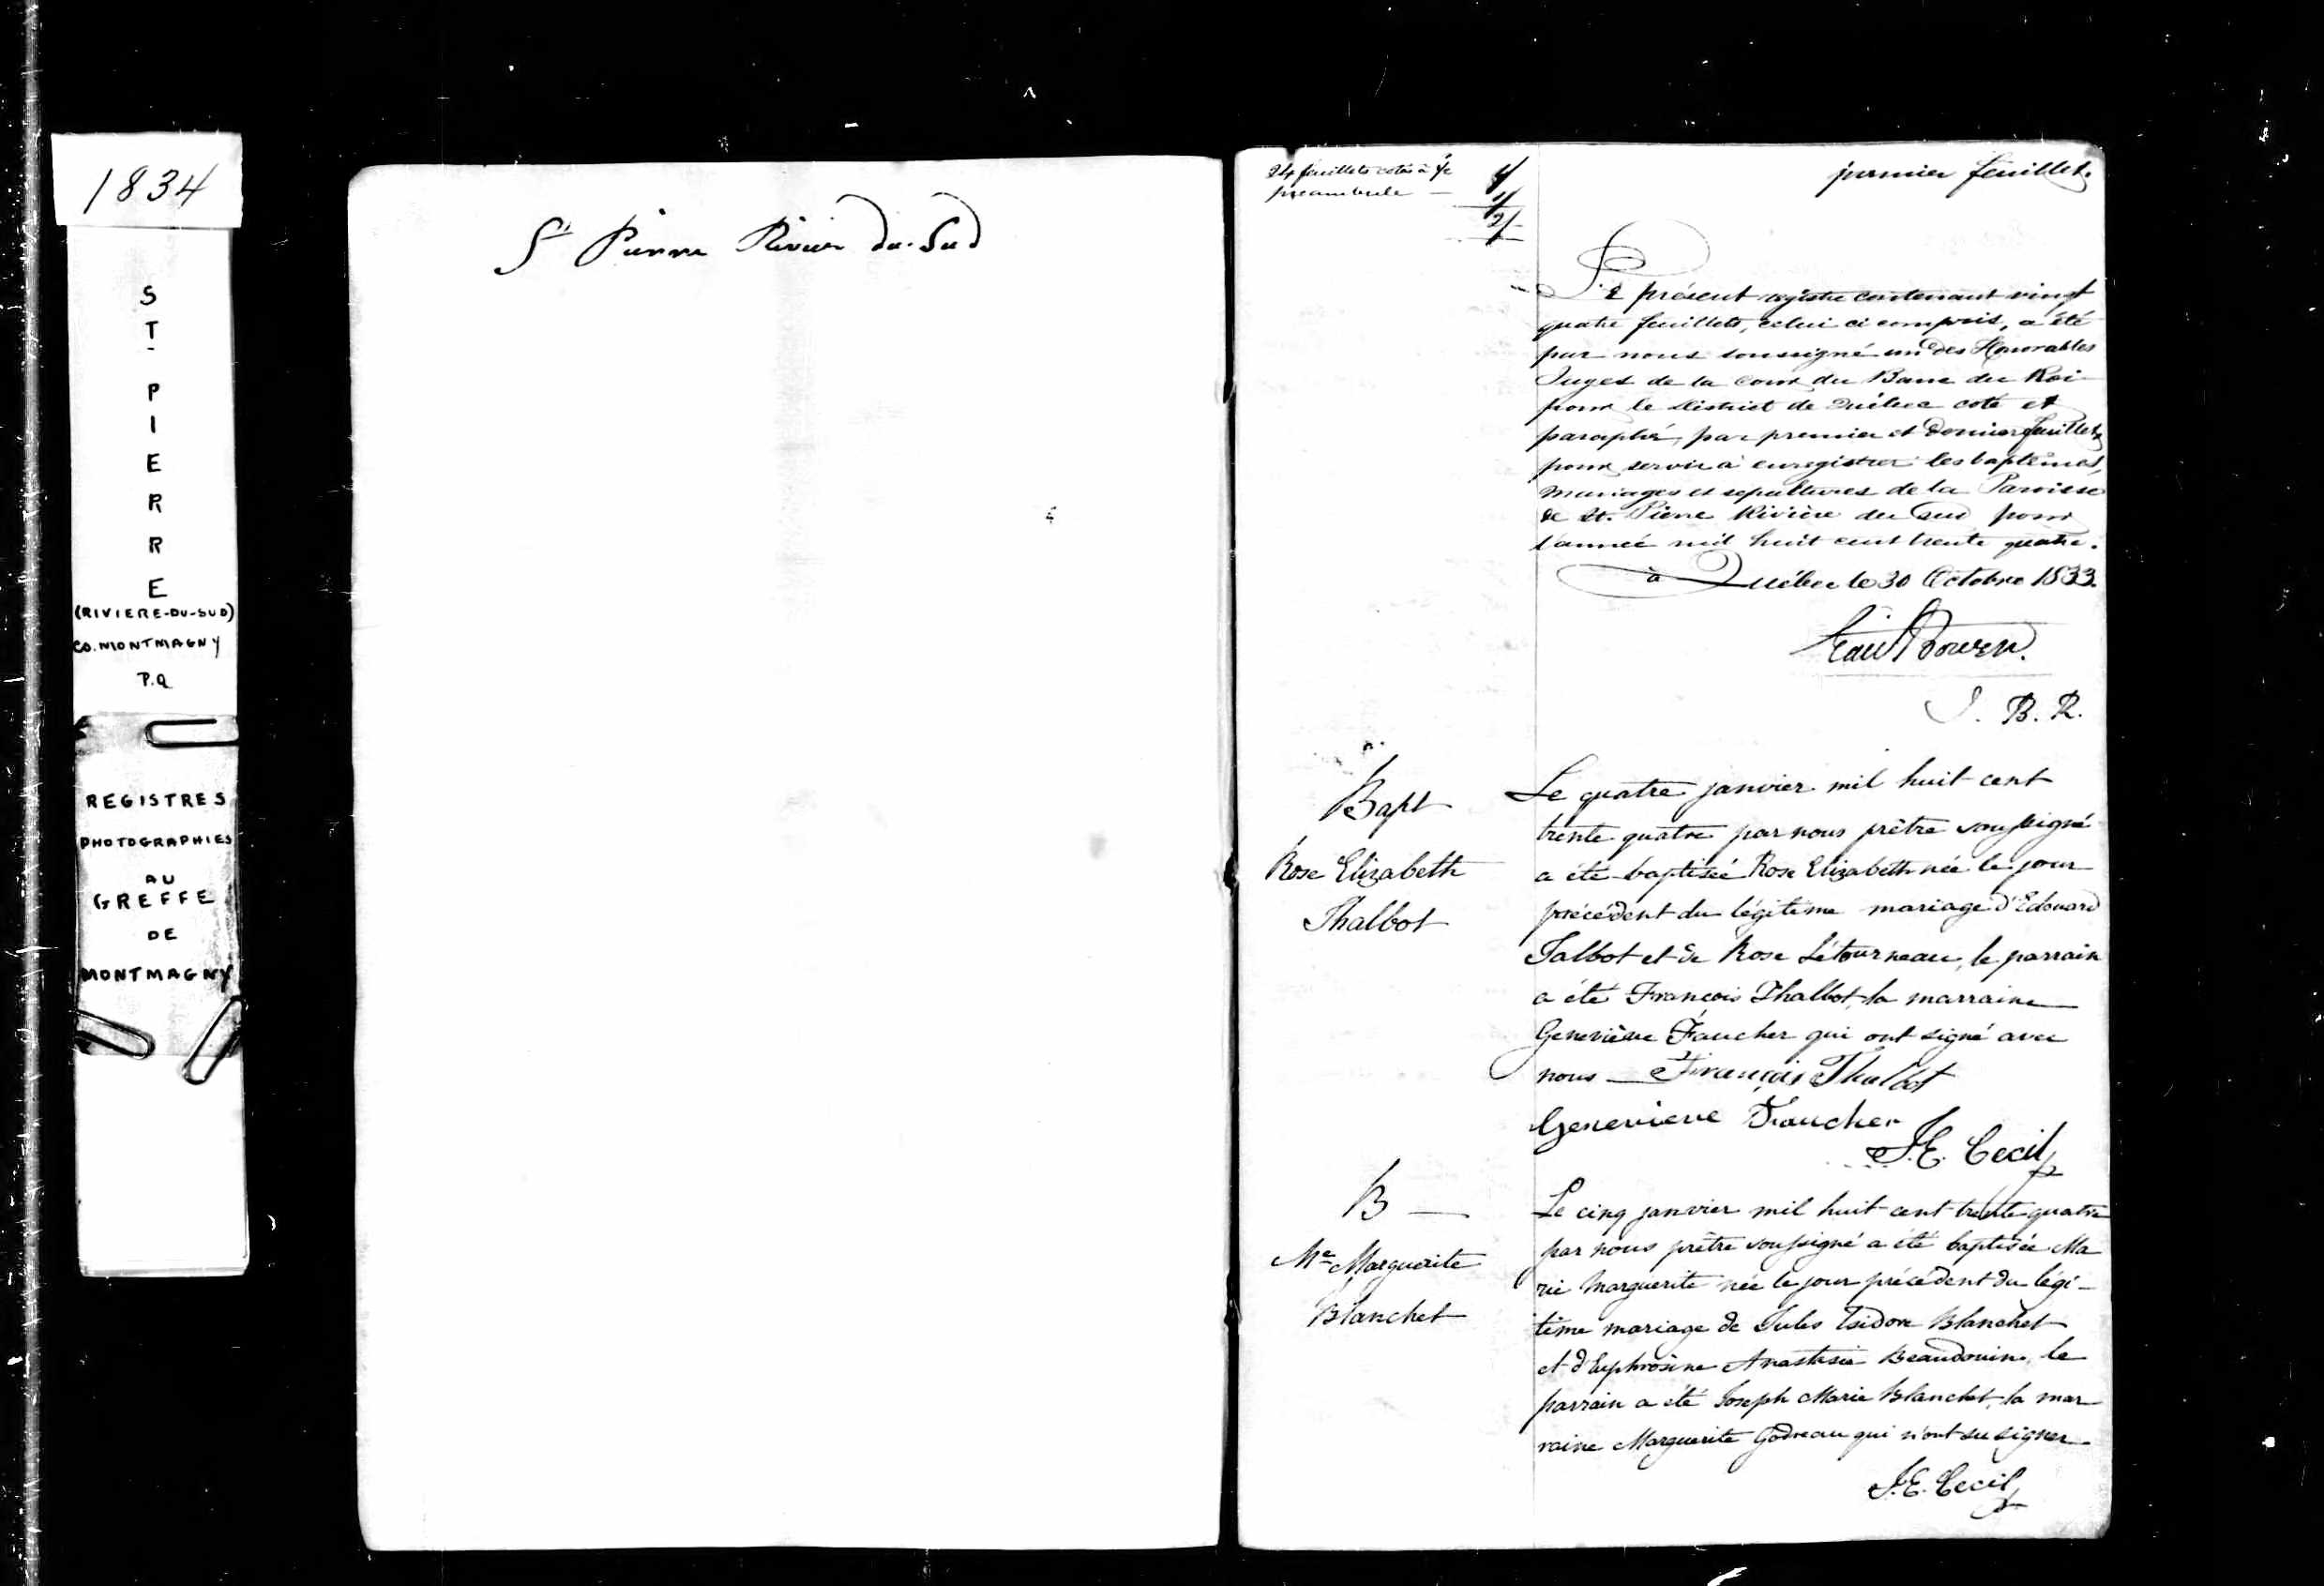 1834
S
T
P
I
E
R
R
E
(RIVIERE-DU-SUD)
CO. MONTMAGNY
P.Q
REGISTRES
PHOTOGRAPHIES
AU
GREFFE
DE
MONTMAGNY
St Pierre Rivier du Sud
24 feuillets cotés à
préambule
premier feuillet.
Le présent registre contenant vingt
quatre feuillets, celui ci compris, a été
par nous soussigné un des Honorables
Juges de la Cour du Banc du Roi
pour le District de Québec coté et
paraphé, par premier et dernier feuillet,
pour servir à enregistrer les baptêmes,
mariages et sepultures de la Paroisse
de St. Pierre Rivière du Sud pour
l'année mil huit cent trente quatre.
à Québec le 30 Octobre 1833.
Bowen.
J. B. R.
Bapt
Rose Elizabeth
Thalbot
Le quatre janvier mil huit cent
trente quatre par nous prêtre soussigné
a été baptisée Rose Elizabeth née le jour
précédent du légitime mariage d'Edouard
Talbot et de Rose Létourneau, le parrain
a été François Thalbot, la marraine
Geneviève Faucher qui ont signé avec
nous — François Thalbot
Genevieve Faucher
J.E. Cecil
B —
Me Marguerite
Blanchet
Le cinq janvier mil huit cent trente quatre
par nous prêtre soussigné a été baptisée Ma
rie Marguerite née le jour précédent du légi-
time mariage de Jules Isidore Blanchet
et d'Euphrosine Anastasie Beaudouin, le
parrain a été Joseph Marie Blanchet, la mar
raine Marguerite Godreau qui n'ont su signer.
J.E. Cecil